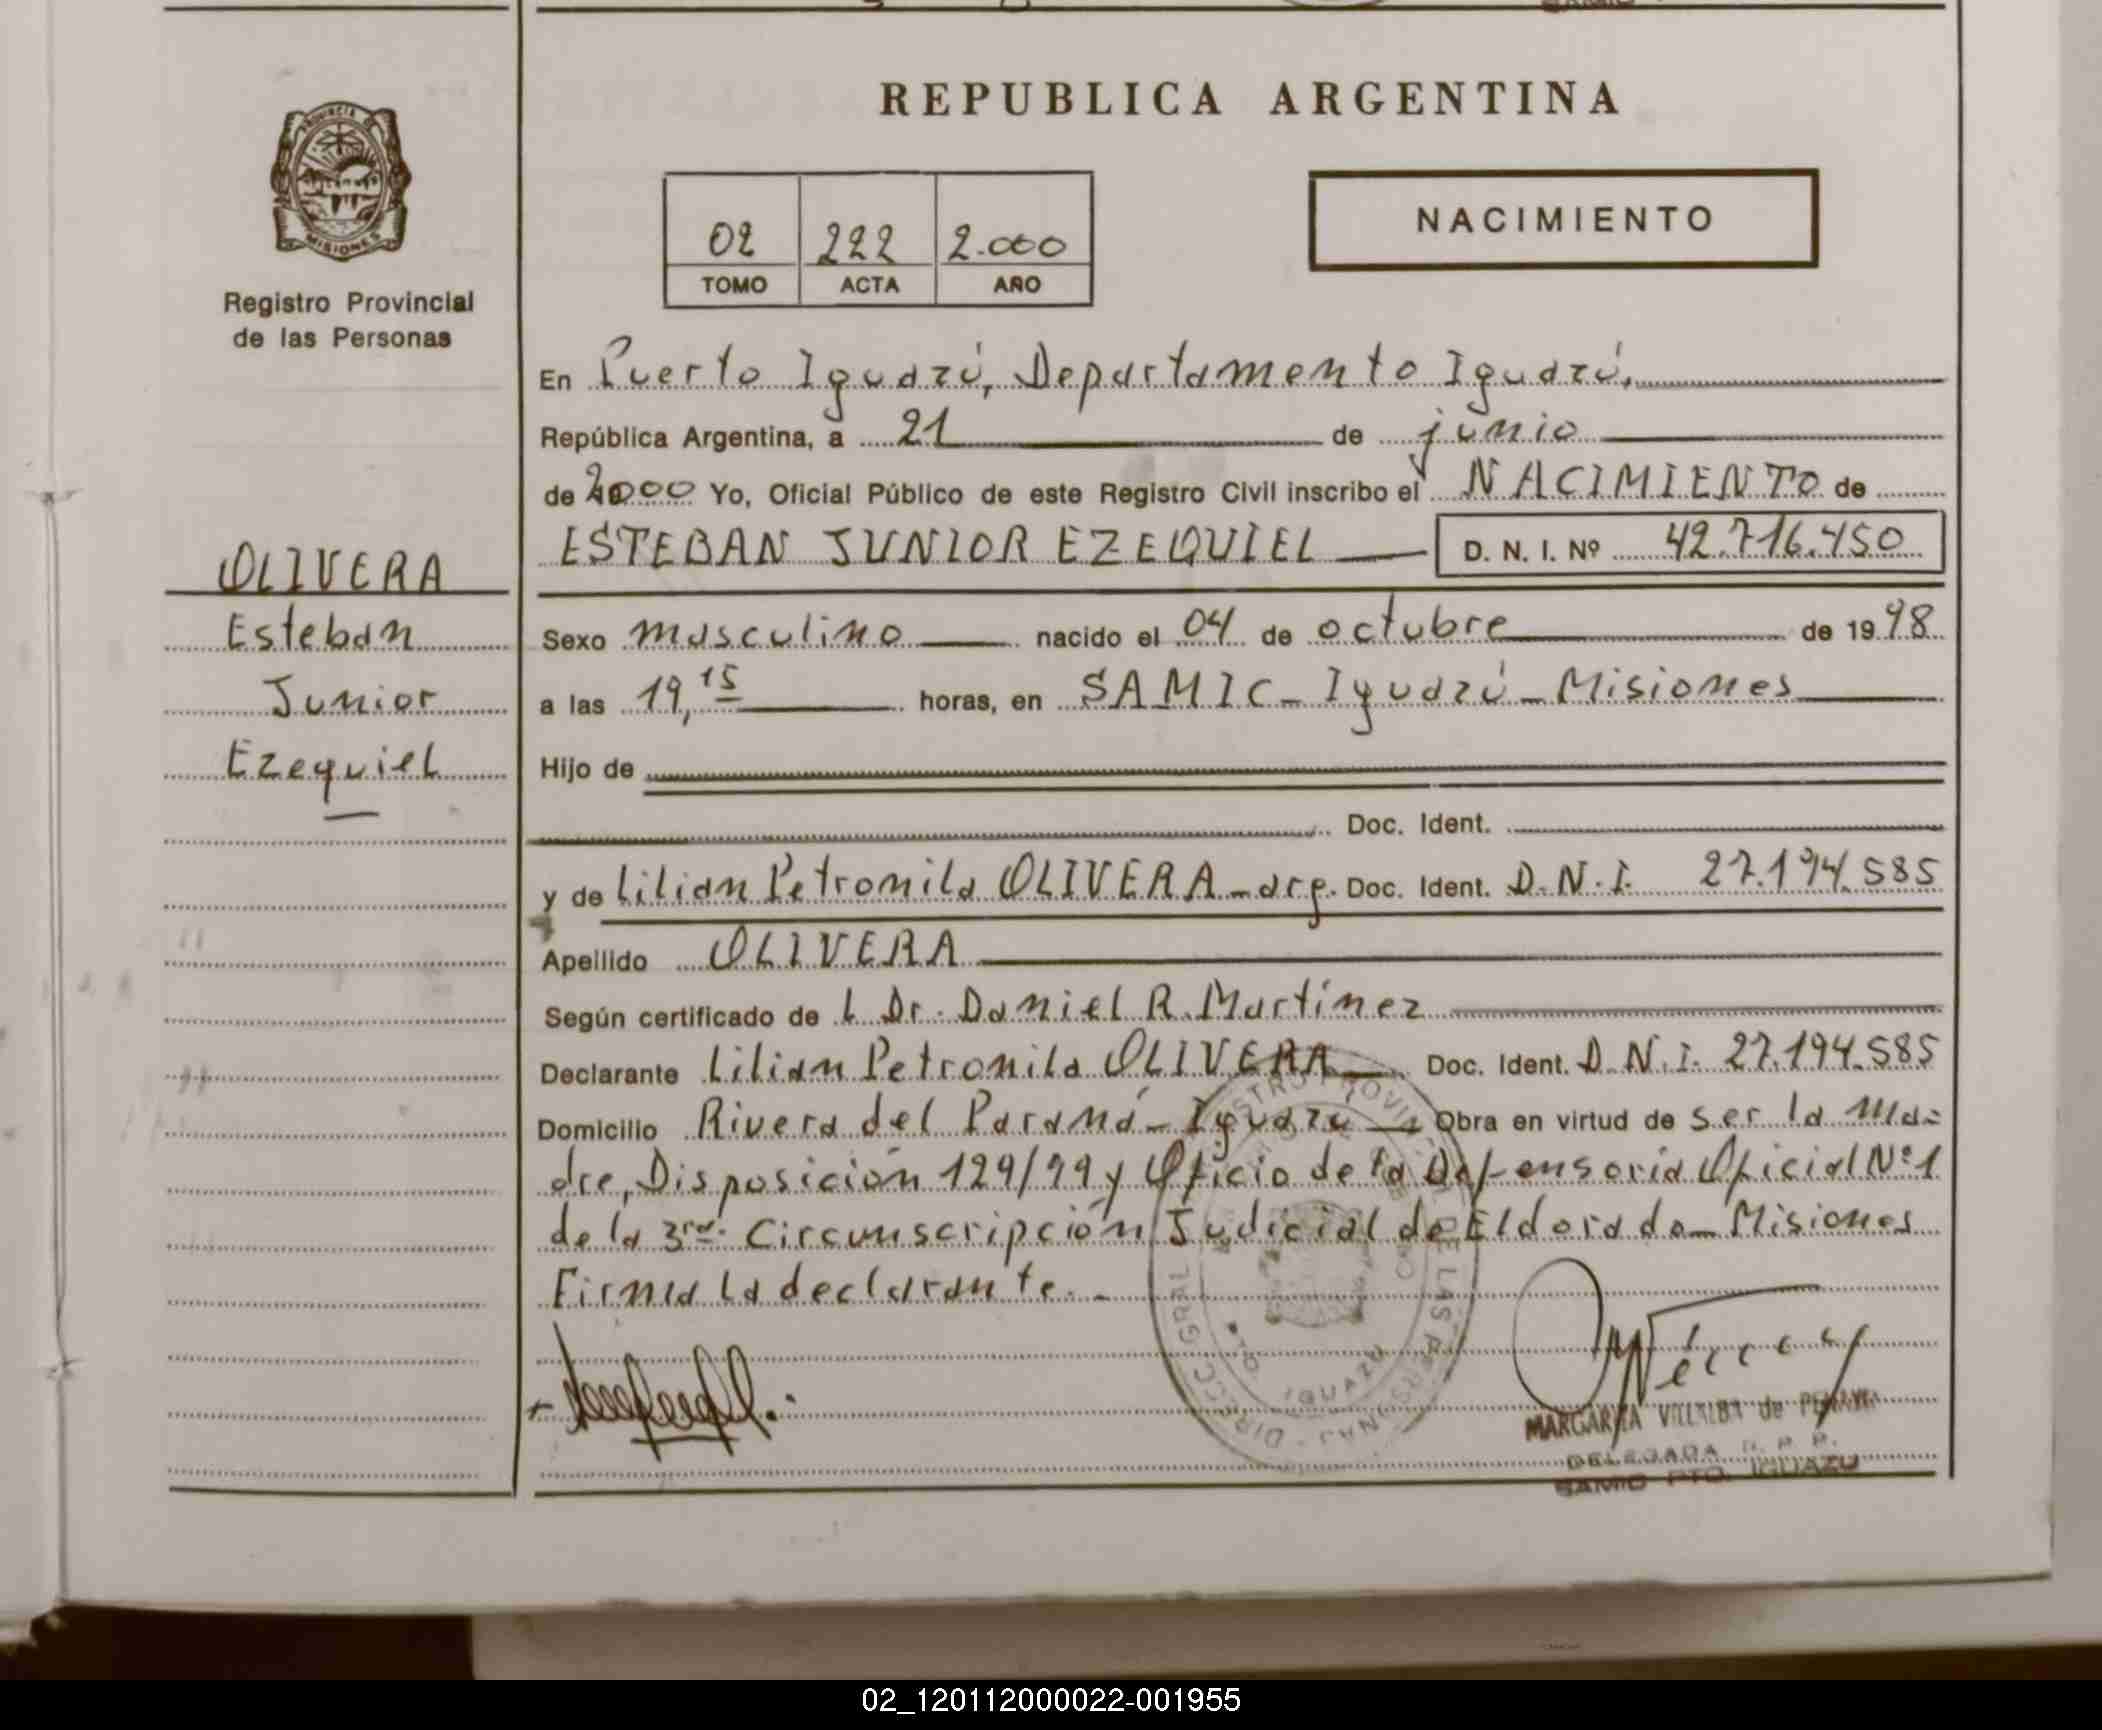 REPUBLICA ARGENTINA
PROVINCIA DE
MISIONES
Registro Provincial
de las Personas
02 222 2.000
TOMO ACTA AÑO
NACIMIENTO
En Puerto Iguazú, Departamento Iguazú,
República Argentina, a 21 de junio
de 2000 Yo, Oficial Público de este Registro Civil inscribo el NACIMIENTO de
ESTEBAN JUNIOR EZEQUIEL D. N. I. Nº 42.716.450
OLIVERA
Esteban
Junior
Ezequiel
Sexo masculino nacido el 04 de octubre de 1998
a las 19,15 horas, en SAMIC - Iguazú - Misiones
Hijo de
Doc. Ident.
y de Lilian Petronila OLIVERA - arg. Doc. Ident. D.N.I. 27.194.585
Apellido OLIVERA
Según certificado de l Dr. Daniel R. Martínez
Declarante Lilian Petronila OLIVERA Doc. Ident. D.N.I. 27.194.585
Domicilio Rivera del Paraná - Iguazú Obra en virtud de ser la ma=
dre, Disposición 129/99 y Oficio de la Defensoría Oficial Nº 1
de la 3ra. Circunscripción Judicial de Eldorado - Misiones
Firma la declarante. -
MARGARITA VILLALBA de
DELEGADA R. P. P.
SAMIC PTO. IGUAZU
02_120112000022-001955